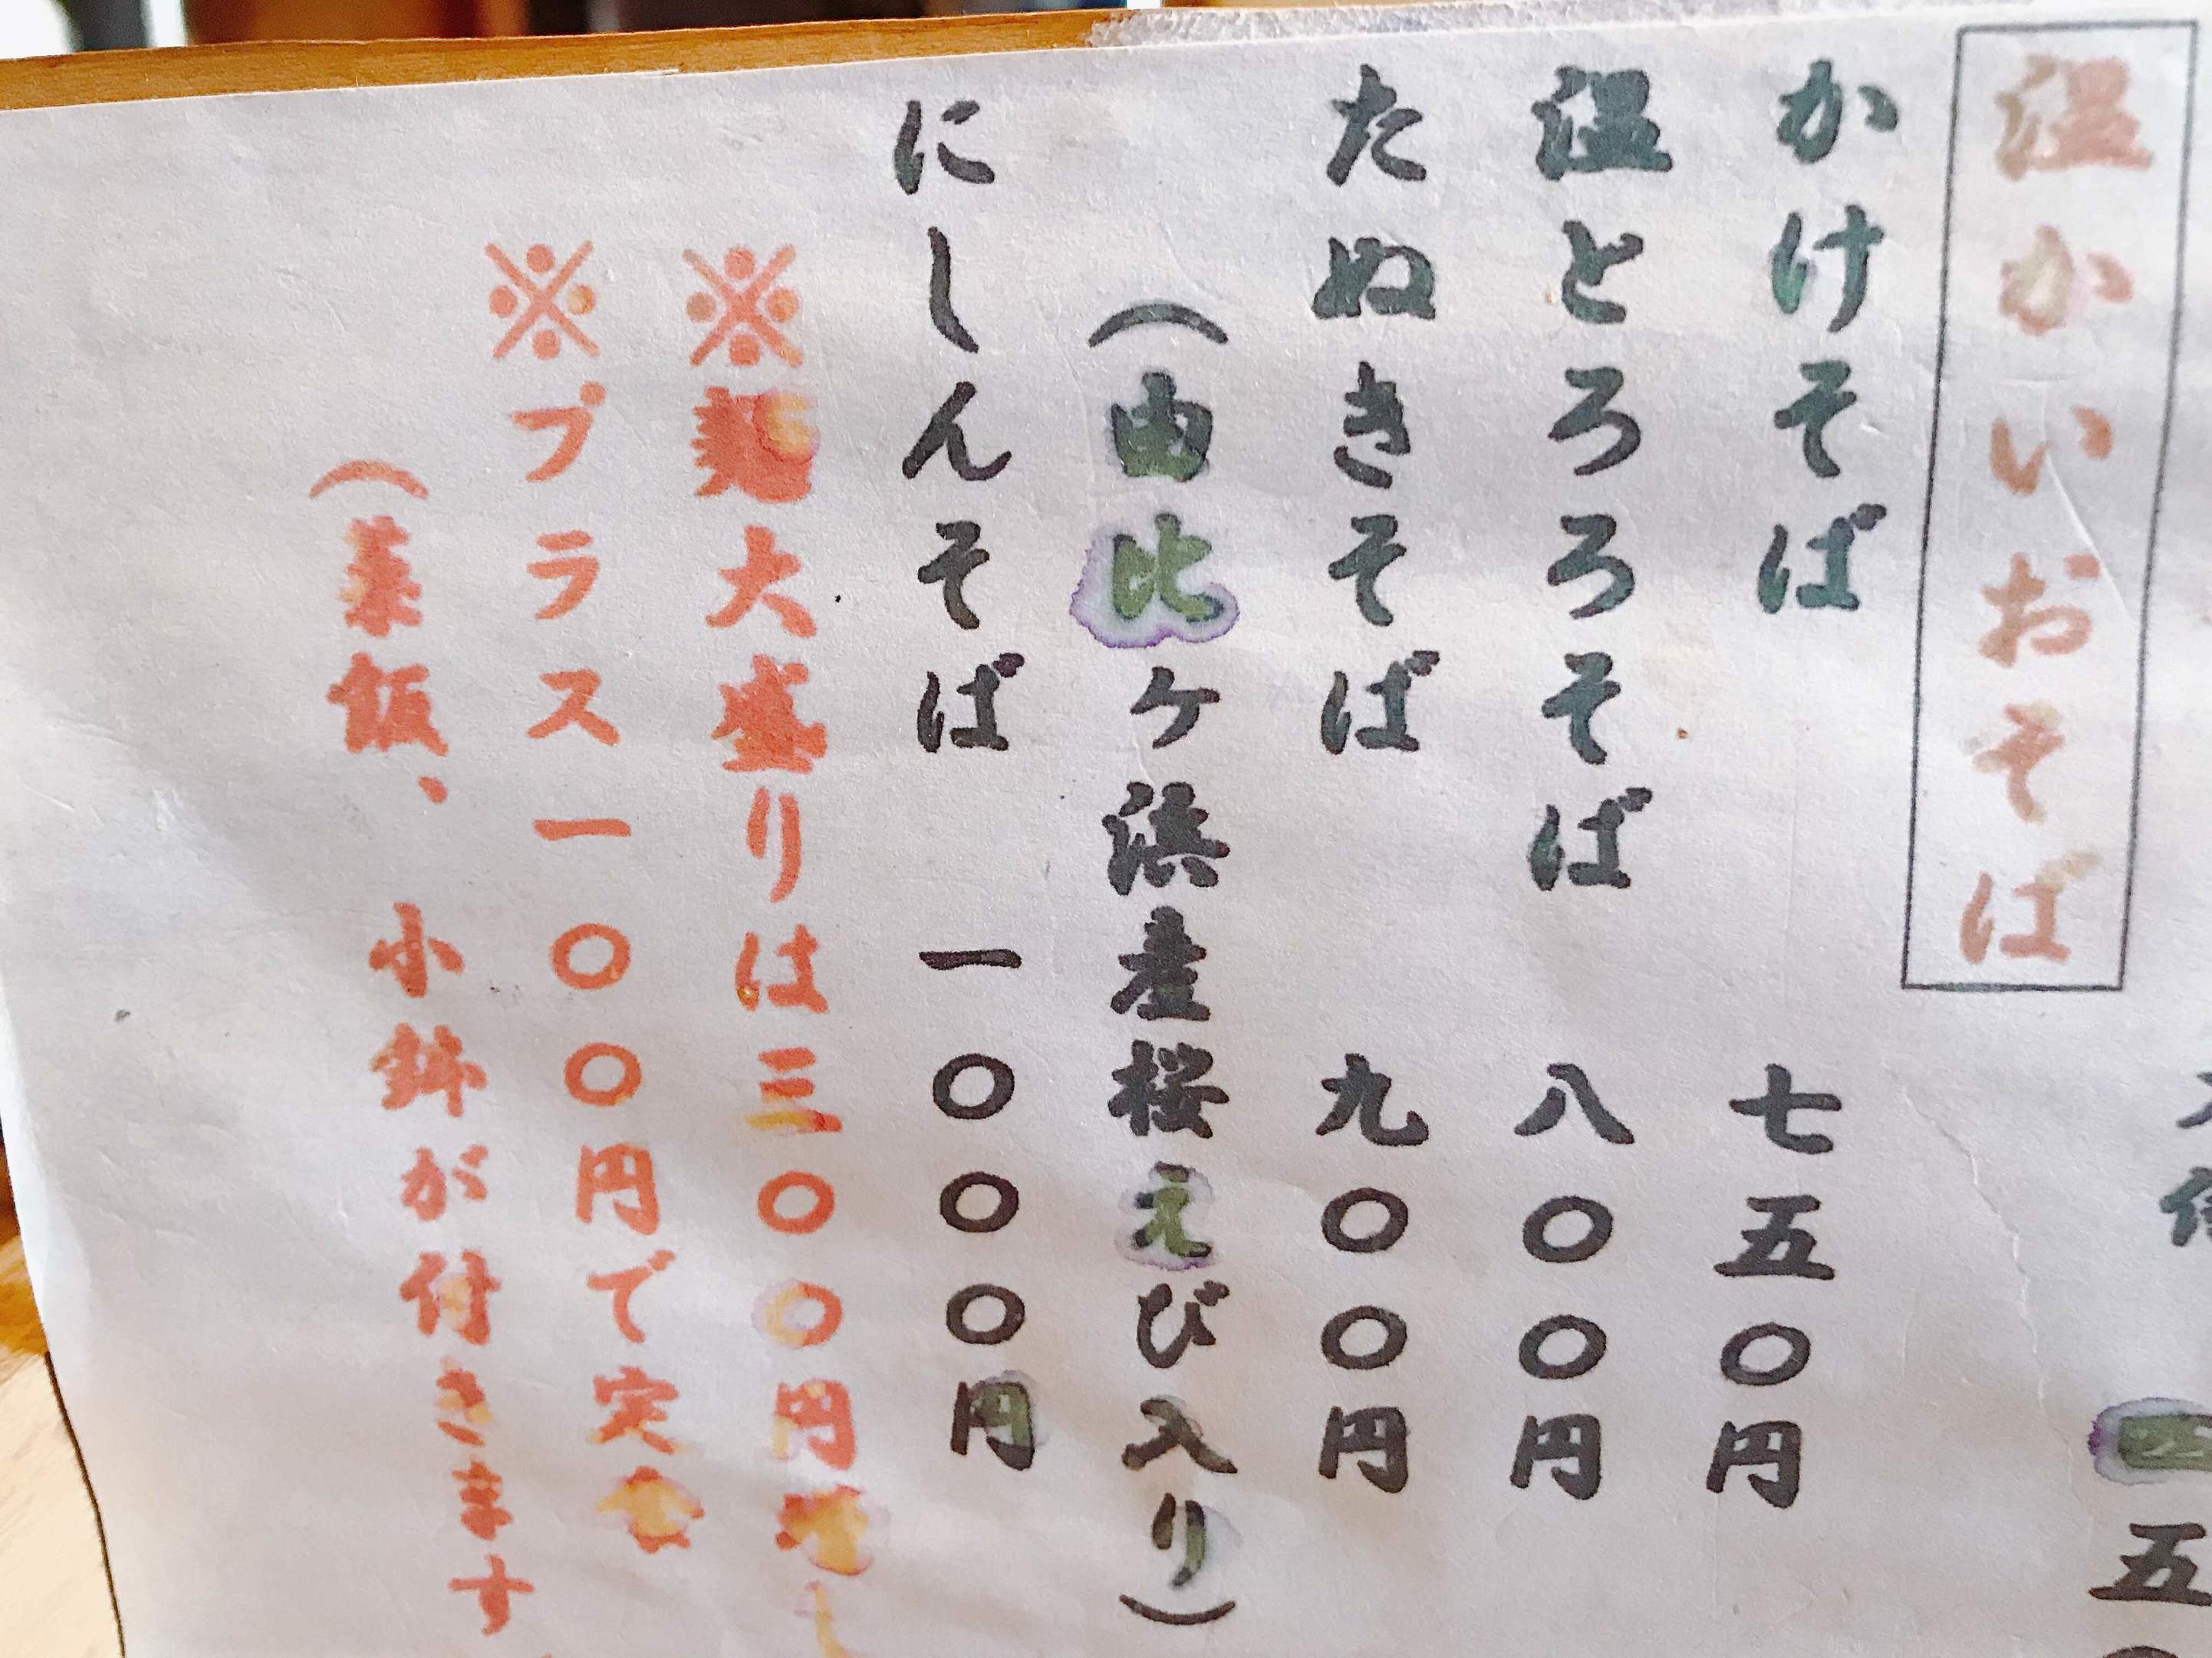 温かいおそば
かけそば 七五〇円
温とろろそば 八〇〇円
たぬきそば 九〇〇円
（由比ケ浜産桜えび入り）
にしんそば 一〇〇〇円
※麺大盛りは三〇〇円増し
※プラス一〇〇円で定食
（菜飯、小鉢が付きます